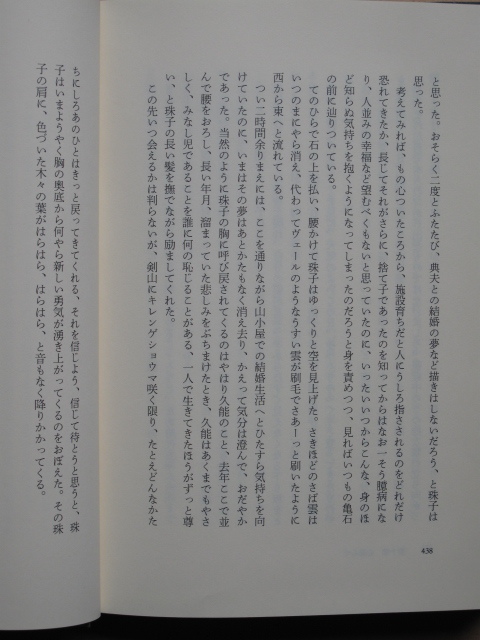 と思った。おそらく二度とふたたび、典夫との結婚の夢など描きはしないだろう、と珠子は
思った。
考えてみれば、もの心ついたころから、施設育ちだと人にうしろ指さされるのをどれだけ
恐れてきたか、長じてそれがさらに、捨て子であったのを知ってからはなお一そう臆病にな
り、人並みの幸福など望むべくもないと思っていたのに、いったいいつからこんな、身のほ
ど知らぬ気持ちを抱くようになってしまったのだろうと身を責めつつ、見ればいつもの亀石
の前に辿りついている。
てのひらで石の上を払い、腰かけて珠子はゆっくりと空を見上げた。さきほどのさば雲は
いつのまにやら消え、代わってヴェールのようなうすい雲が刷毛でさあーっと刷いたように
西から東へと流れている。
つい二時間余りまえには、ここを通りながら山小屋での結婚生活へとひたすら気持ちを向
けていたのに、いまはその夢はあとかたもなく消え去り、かえって気分は澄んで、おだやか
であった。当然のように珠子の胸に呼び戻されてくるのはやはり久能のこと、去年ここで並
んで腰をおろし、長い年月、溜まっていた悲しみをぶちまけたとき、久能はあくまでもやさ
しく、みなし児であることを誰に何の恥じることがある、一人で生きてきたほうがずっと尊
い、と珠子の長い髪を撫でながら励ましてくれた。
この先いつ会えるかは判らないが、剣山にキレンゲショウマ咲く限り、たとえどんなかた
438
ちにしろあのひとはきっと戻ってきてくれる、それを信じよう、信じて待とうと思うと、珠
子はいまようやく胸の奥底から何やら新しい勇気が湧き上がってくるのをおぼえた。その珠
子の肩に、色づいた木々の葉がはらはら、はらはら、と音もなく降りかかってくる。